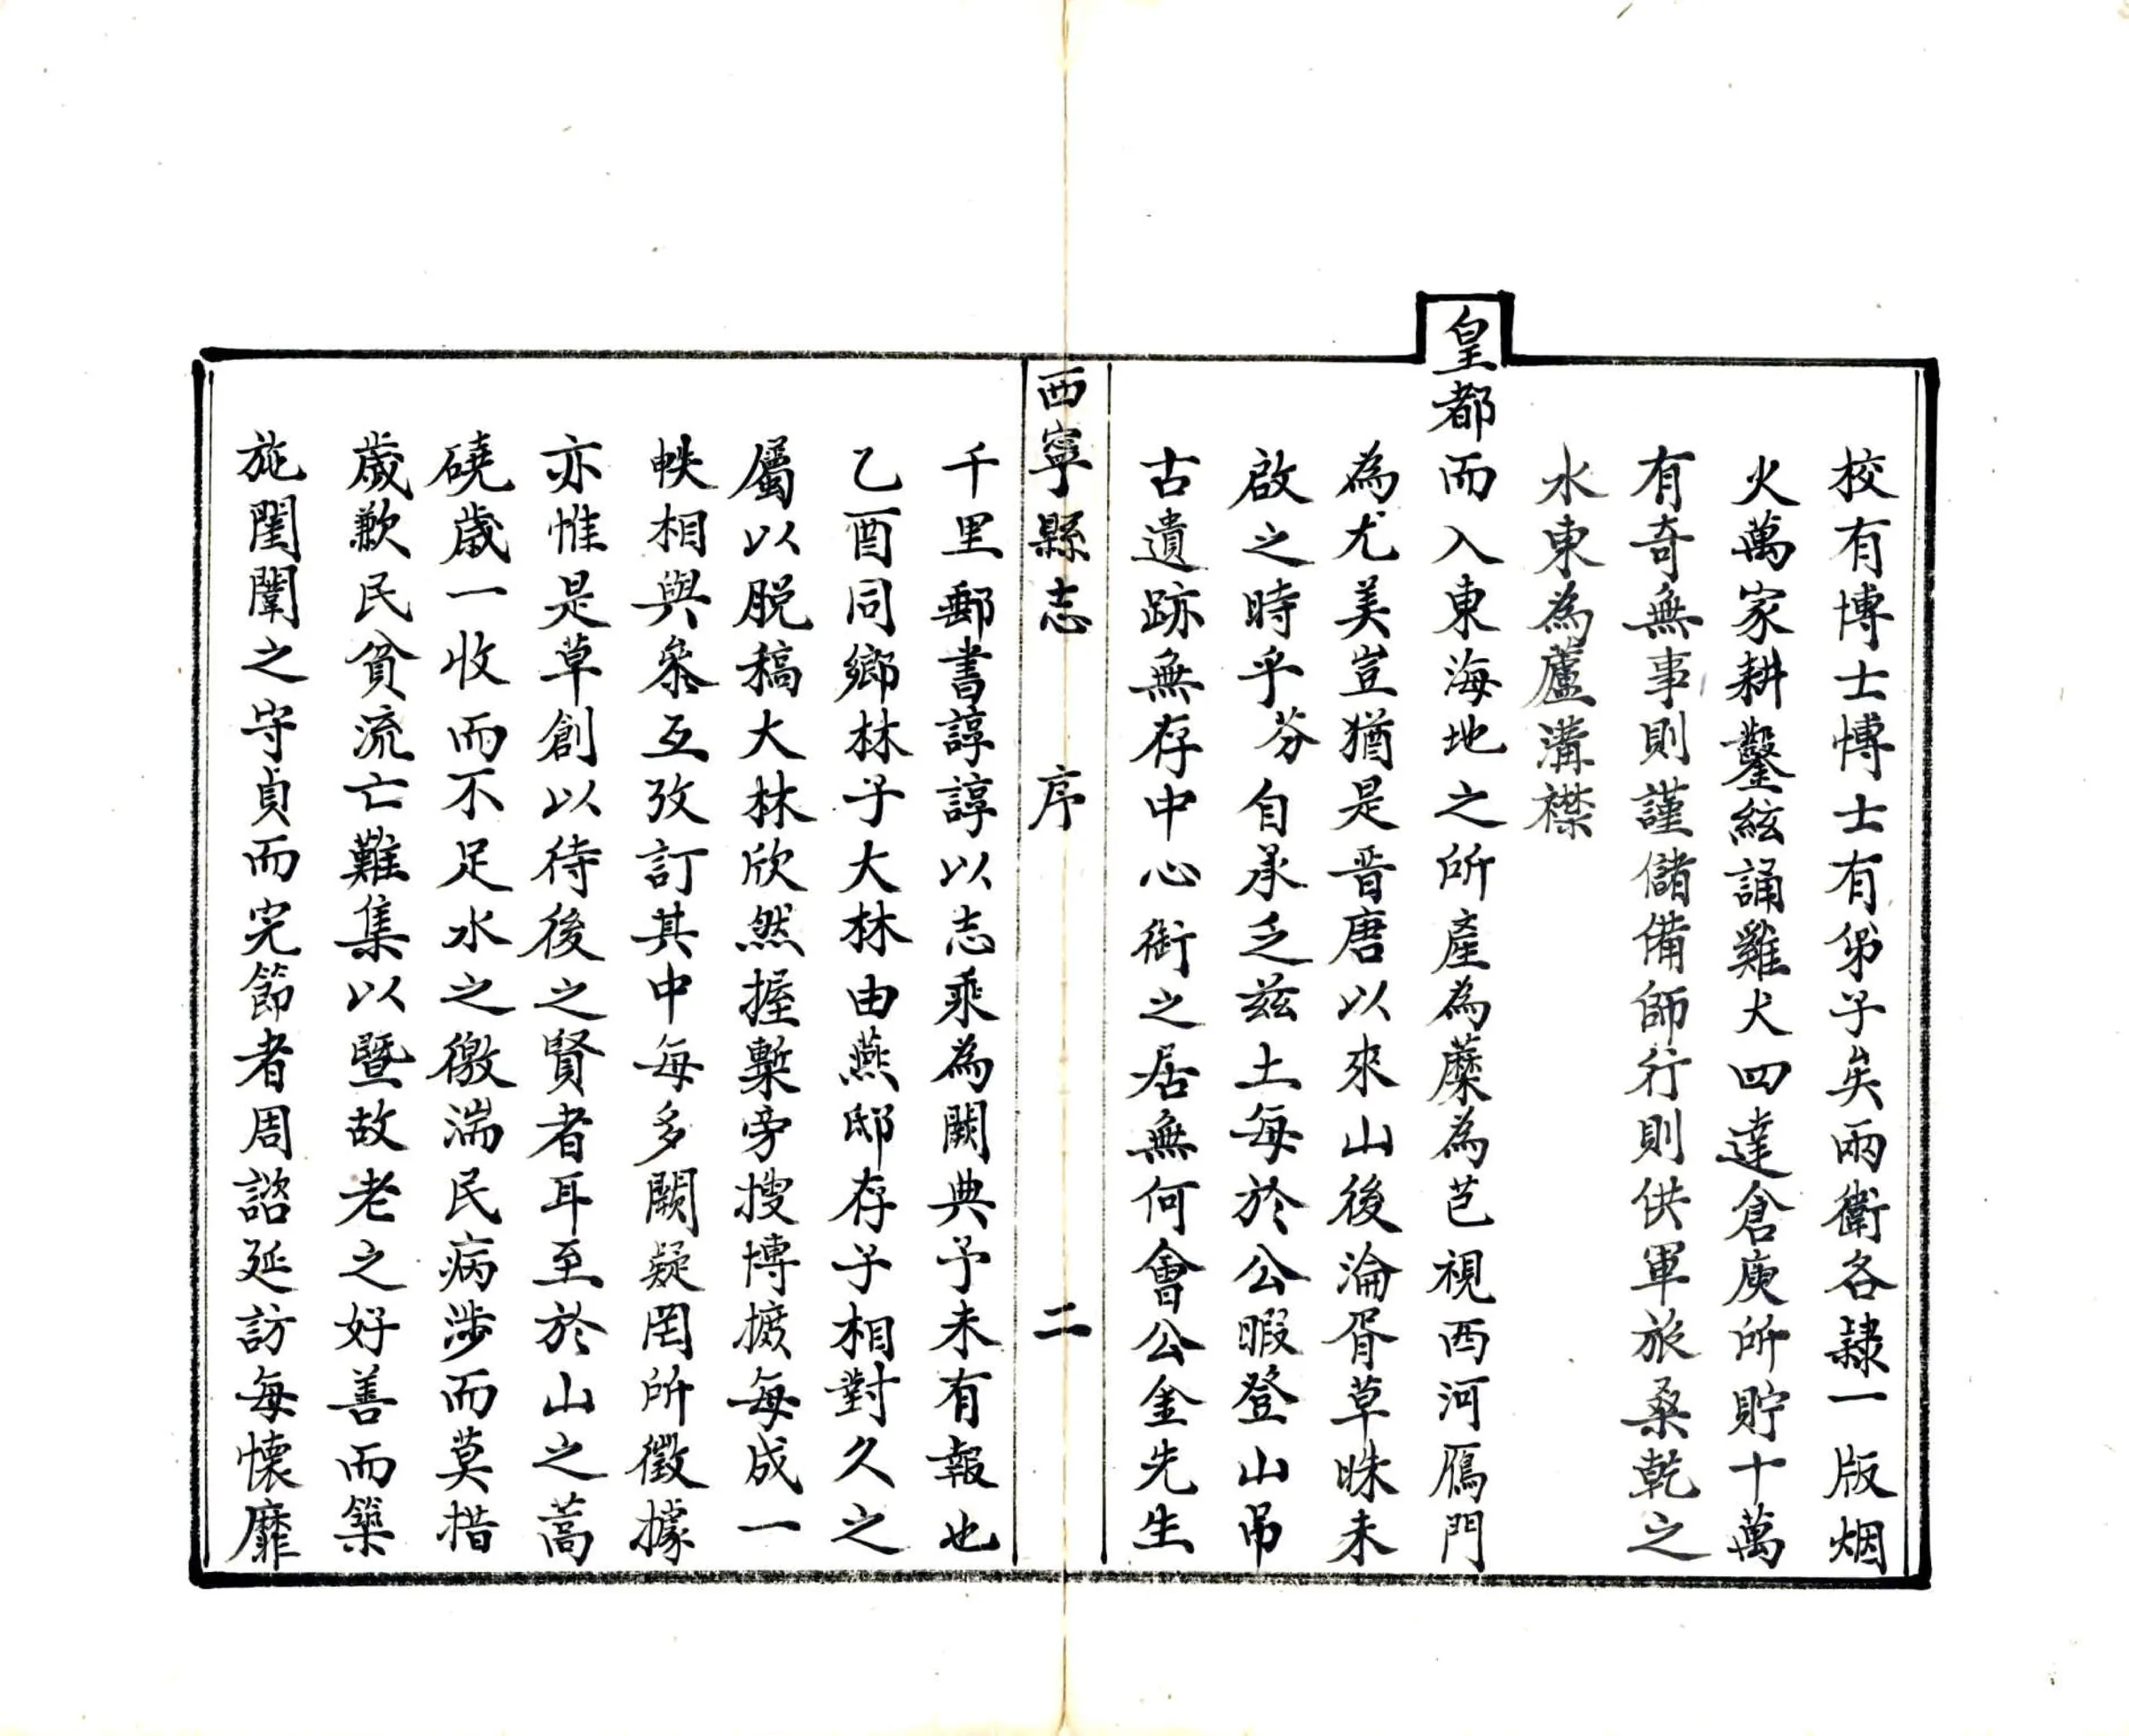 校有博士博士有弟子矣兩衛各隸一版烟
火萬家耕鑿絃誦雞犬四達倉庾所貯十萬
有奇無事則謹儲備師行則供軍旅桑乾之
水東為蘆溝襟
皇都而入東海地之所產為蘪為芑視西河鴈門
為尤美豈猶是晉唐以來山後淪胥草昧未
啟之時乎芬自承乏茲土每於公暇登山吊
古遺跡無存中心銜之居無何會公金先生
西寧縣志 序 二
千里郵書諄諄以志乘為闕典予未有報也
乙酉同鄉林子大林由燕邸存子相對久之
屬以脫稿大林欣然握槧旁搜博摭每成一
帙相與叅互攷訂其中每多闕疑罔所徵據
亦惟是草創以待後之賢者耳至於山之蒿
磽歲一收而不足水之徼湍民病涉而莫措
歲歉民貧流亡難集以暨故老之好善而築
施閨闈之守貞而完節者周諮延訪每懷靡